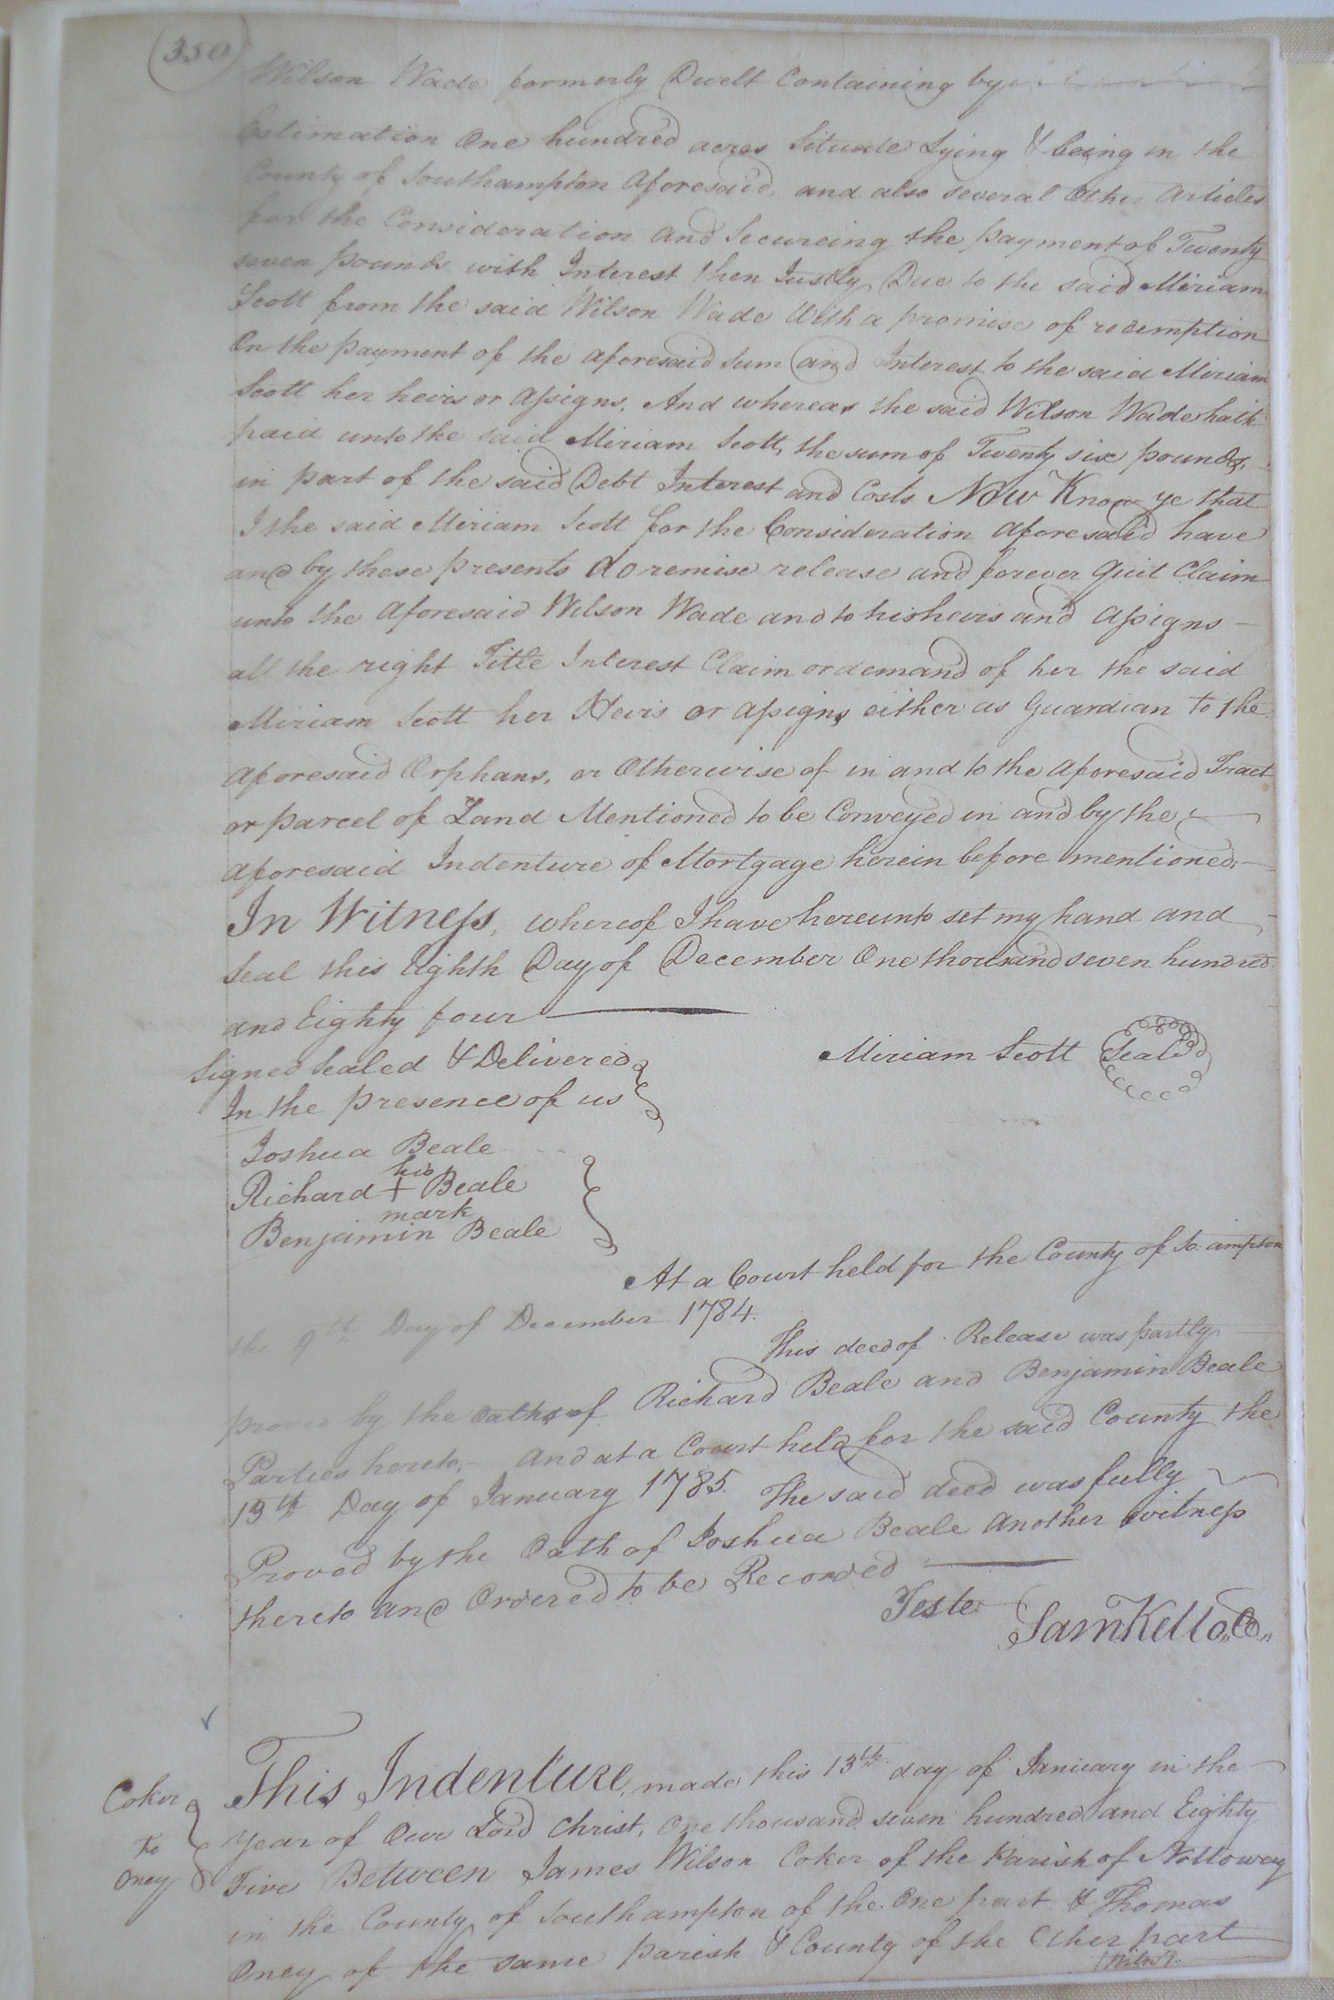 (350)
Wilson Wade formerly Dwelt Containing by
Estimation One hundred acres Situate Lying & being in the
County of Southampton Aforesaid, and also several Other Articles
for the Consideration and Secureing the payment of Twenty
seven pounds with Interest then Justly Due to the said Miriam
Scott from the said Wilson Wade With a promise of redemption
On the payment of the aforesaid Sum and Interest to the said Miriam
Scott her heirs or Assigns, And whereas the said Wilson Wade hath
paid unto the said Miriam Scott, the sum of Twenty six pounds,
in part of the said Debt Interest and Costs Now Know ye that
I the said Miriam Scott for the Consideration aforesaid have
and by these presents do remise release and forever Quit Claim
unto the Aforesaid Wilson Wade and to his heirs and Assigns
all the right Title Interest Claim or demand of her the said
Miriam Scott her Heirs or Assigns either as Guardian to the
aforesaid Orphans, or Otherwise of in and to the aforesaid Tract
or parcel of Land Mentioned to be Conveyed in and by the
aforesaid Indenture of Mortgage herein before mentioned,
In Witness, whereof I have hereunto set my hand and
Seal this Eighth Day of December One thousand seven hundred
and Eighty four
Miriam Scott Seal
Signed Sealed & Delivered
In the presence of us
Joshua Beale
his
Richard + Beale
mark
Benjamin Beale
At a Court held for the County of So.ampton
the 9th Day of December 1784.
This deed of Release was partly
proved by the Oaths of Richard Beale and Benjamin Beale
Parties hereto, and at a Court held for the said County the
13th Day of January 1785. The said deed was fully
Proved by the Oath of Joshua Beale another witness
thereto and Ordered to be Recorded
Teste
Sam Kello, C
This Indenture, made this 13th day of January in the
Coker
to
Oney
Year of Our Lord Christ, One thousand seven hundred and Eighty
Five Between James Wilson Coker of the Parish of Nottoway
in the County of Southampton of the One part & Thomas
Oney of the same Parish & County of the Other part